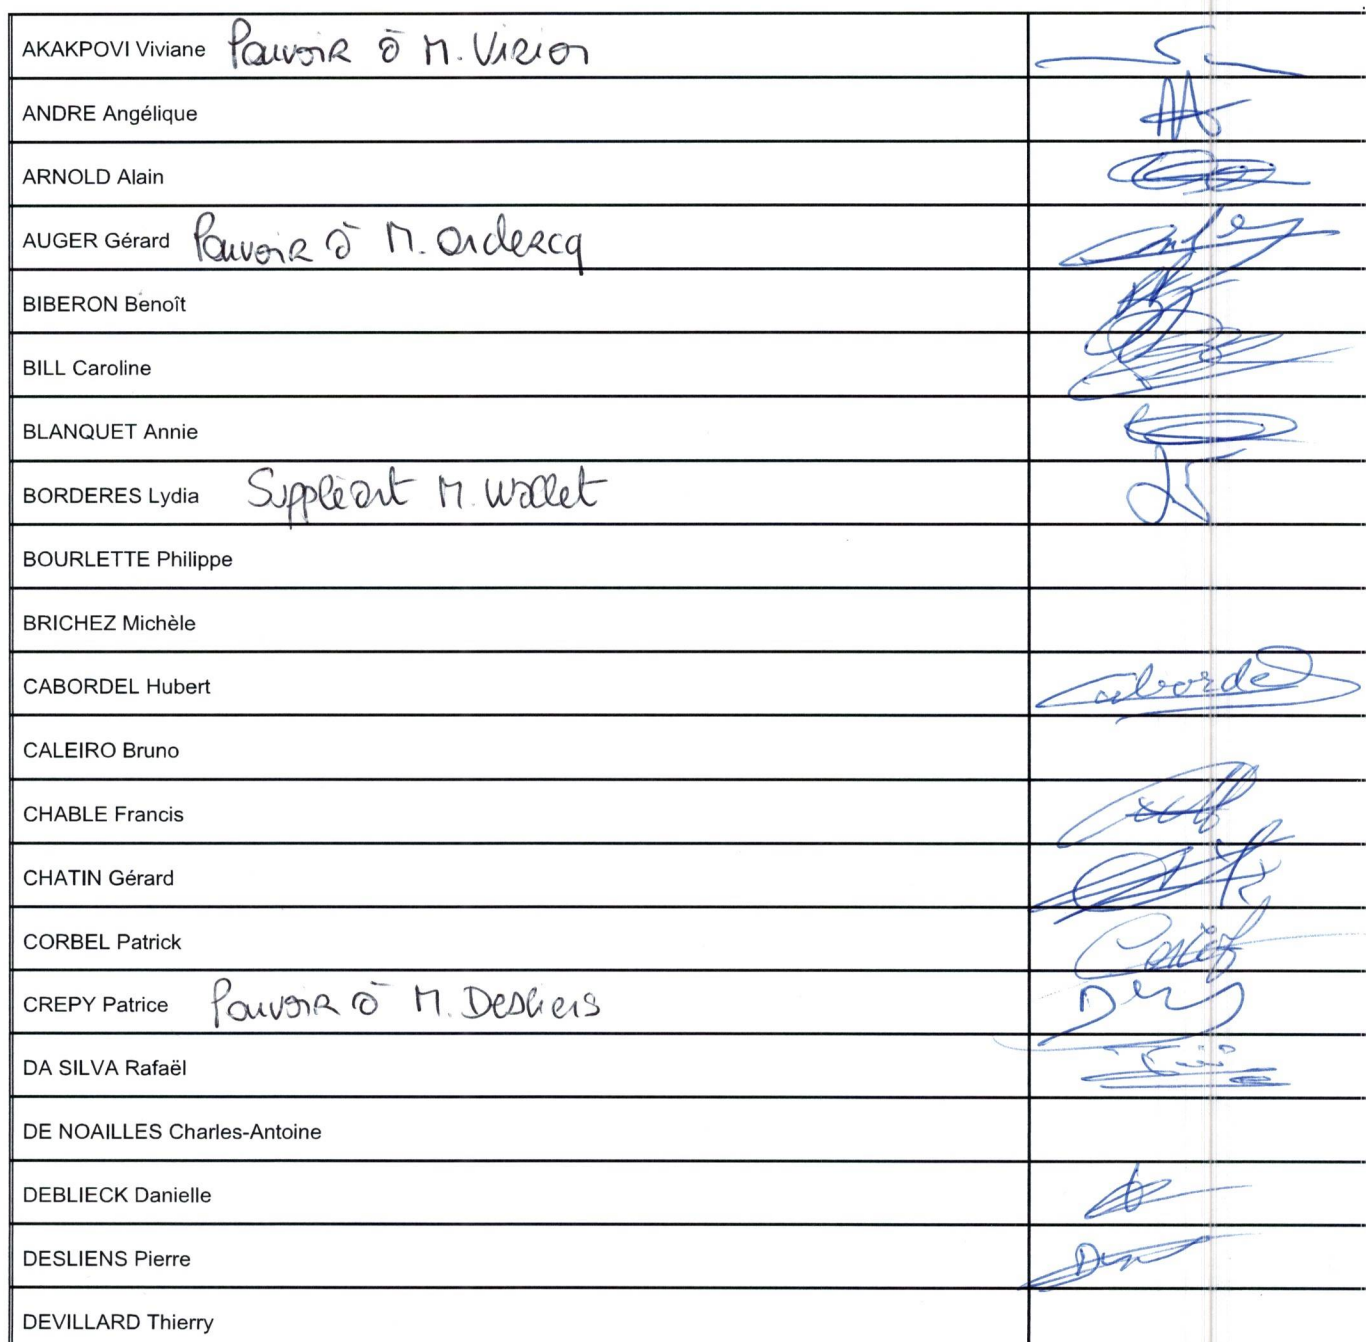 AKAKPOVI Viviane Pouvoir à M. Virion
ANDRE Angélique
ARNOLD Alain
AUGER Gérard Pouvoir à M.
BIBERON Benoît
BILL Caroline
BLANQUET Annie
BORDERES Lydia Suppléant M. Wallet
BOURLETTE Philippe
BRICHEZ Michèle
CABORDEL Hubert Cabordel
CALEIRO Bruno
CHABLE Francis
CHATIN Gérard
CORBEL Patrick
CREPY Patrice Pouvoir à M. Desliens
DA SILVA Rafaël
DE NOAILLES Charles-Antoine
DEBLIECK Danielle
DESLIENS Pierre
DEVILLARD Thierry